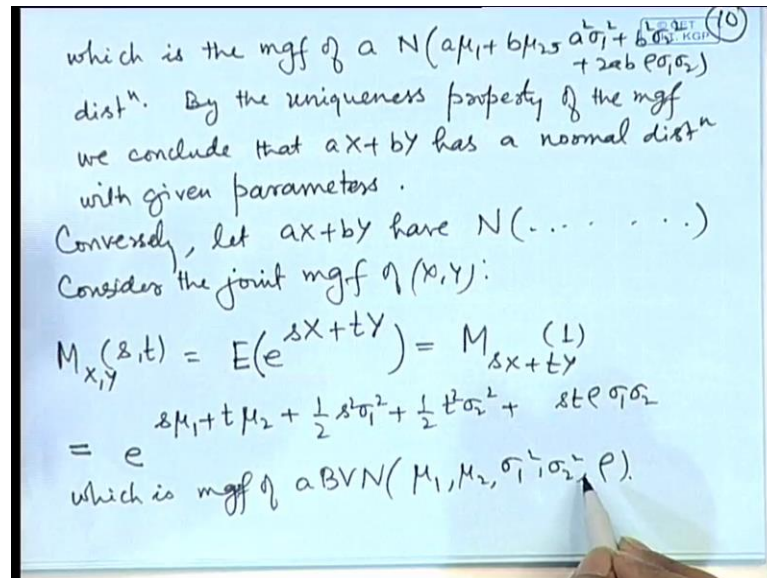 which is the mgf of a N(aμ₁+ bμ₂, a²σ₁²+ b²σ₂² (10)
+ 2ab ρσ₁σ₂)
distⁿ. By the uniqueness property of the mgf
we conclude that aX+ bY has a normal distⁿ
with given parameters.
Conversely, let aX+bY have N(... . . . .)
Consider the joint mgf of (X,Y):
M_{X,Y}(s,t) = E(e^{sX+tY}) = M_{sX+tY}(1)
= e^{sμ₁+tμ₂ + ½ s²σ₁² + ½ t²σ₂² + stρσ₁σ₂}
which is mgf of a BVN( μ₁, μ₂, σ₁², σ₂², ρ).